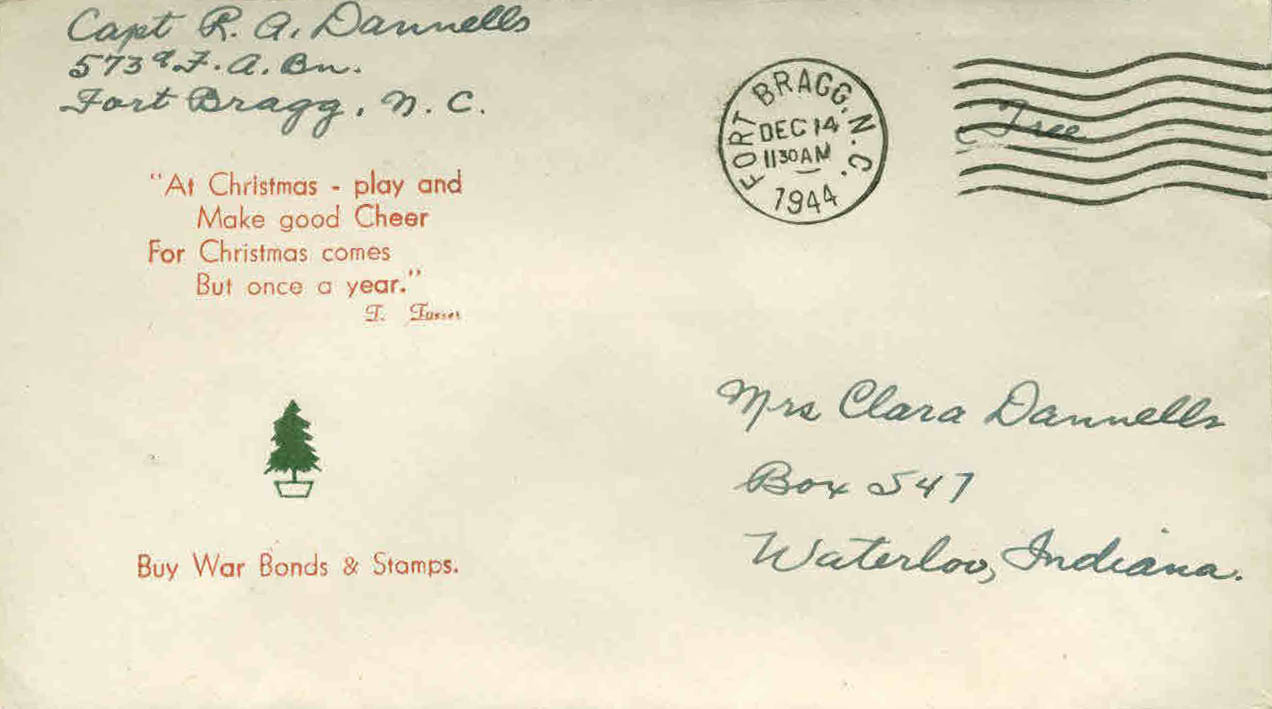 Capt R. A. Dannells
573d F. A. Bn.
Fort Bragg, N. C.
"At Christmas - play and
Make good Cheer
For Christmas comes
But once a year."
T. Tusser
Buy War Bonds & Stamps.
FORT BRAGG, N.C.
DEC 14
11 30 AM
1944
Free
Mrs Clara Dannells
Box 547
Waterloo, Indiana.